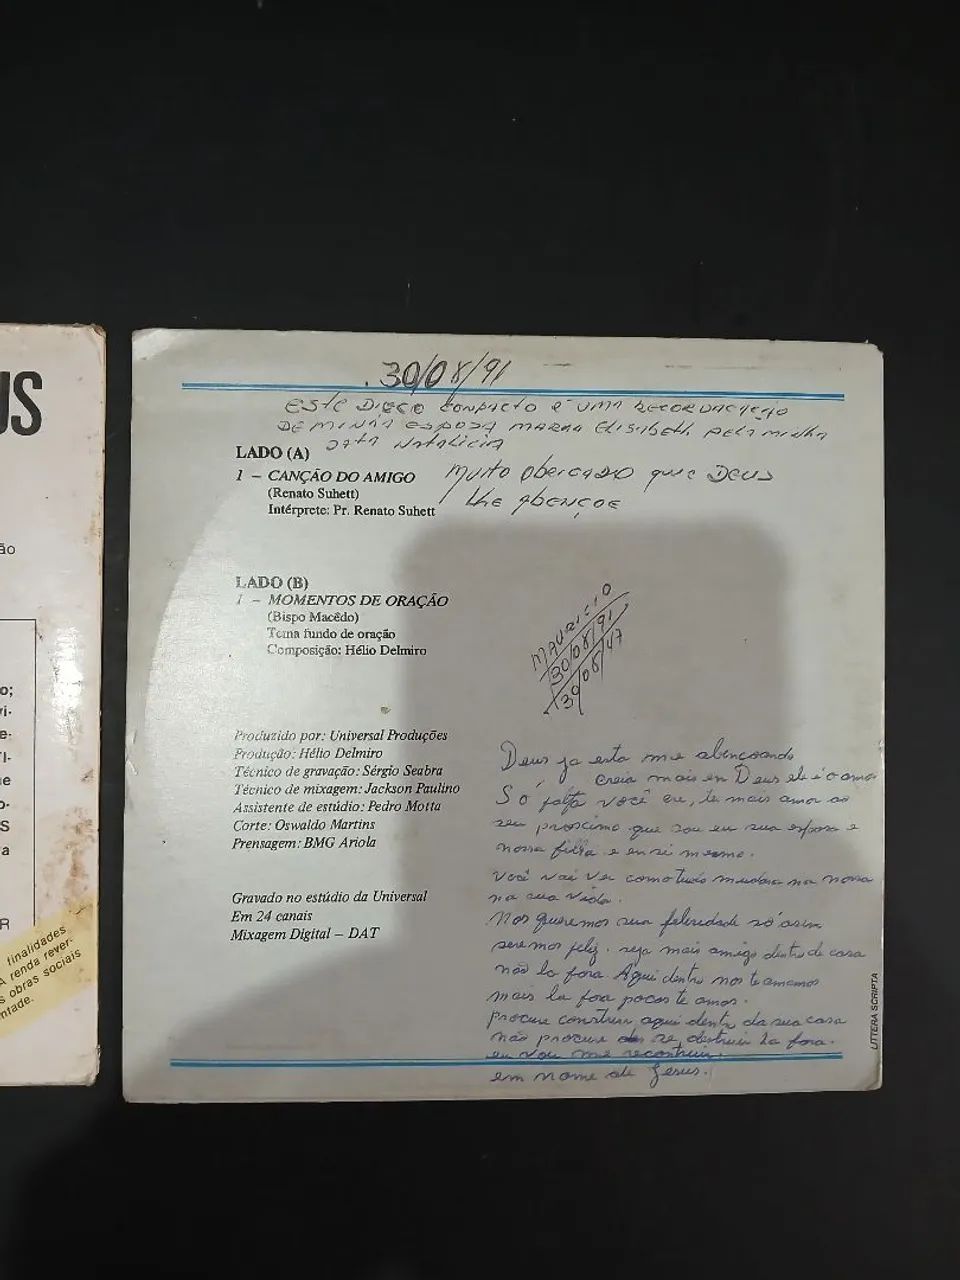 US
ão
o;
vi-
e-
ne
o-
S
a
R
finalidades
A renda rever-
s obras sociais
ntade.
30/08/91
ESTE DISCO COMPACTO É UMA RECORDAÇÃO
DE MINHA ESPOSA MARIA ELISABETH PELA MINHA
DATA NATALICIA
MUITO OBRIGADO QUE DEUS
LHE ABENÇOE
LADO (A)
1 – CANÇÃO DO AMIGO
(Renato Suhett)
Intérprete: Pr. Renato Suhett
LADO (B)
1 – MOMENTOS DE ORAÇÃO
(Bispo Macêdo)
Tema fundo de oração
Composição: Hélio Delmiro
MAURICIO
30/08/91
30/08/47
Produzido por: Universal Produções
Produção: Hélio Delmiro
Técnico de gravação: Sérgio Seabra
Técnico de mixagem: Jackson Paulino
Assistente de estúdio: Pedro Motta
Corte: Oswaldo Martins
Prensagem: BMG Ariola
Gravado no estúdio da Universal
Em 24 canais
Mixagem Digital – DAT
Deus ja esta me abencoando
creia mais en Deus ele é o amor
Só falta você cre, te mais amor ao
seu proscimo que sou eu sua esposa e
nossa filha e en si mesmo.
você vai ver como tudo mudara na nossa
na sua vida.
Nos queremos sua felicidade só asim
seremos feliz. seja mais amigo dentro de casa
não la fora. Aqui dentro nos te amamos
mais la fora pocos te amor.
procure construir aqui dentro da sua casa
não procure se destruir la fora.
eu vou me reconstruir
em nome de Jesus.
LITTERA SCRIPTA